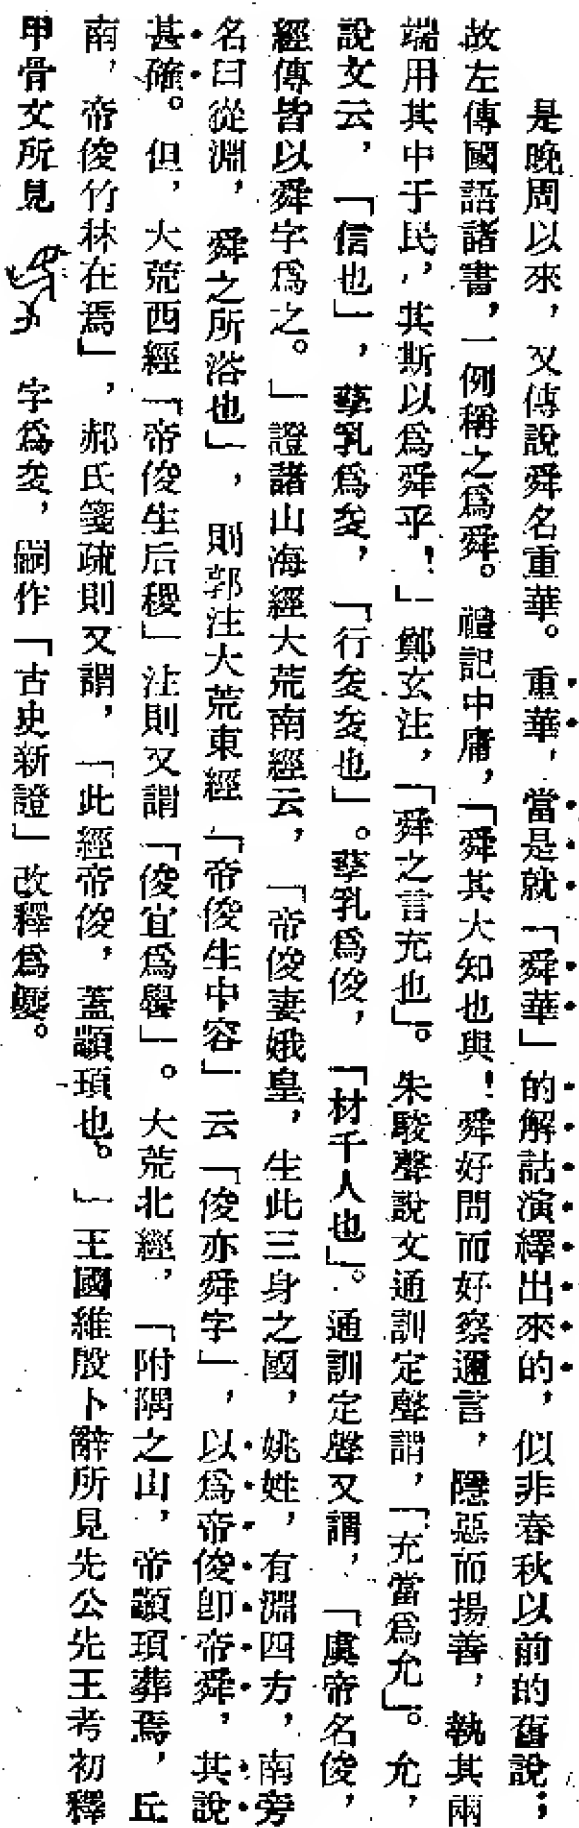 是晚周以來，又傳說舜名重華。重華，當是就「舜華」的解詁演繹出來的，似非春秋以前的舊說；
故左傳國語諸書，一例稱之爲舜。禮記中庸，「舜其大知也與！舜好問而好察邇言，隱惡而揚善，執其兩
端用其中于民，其斯以爲舜乎！」鄭玄注，「舜之言充也」。朱駿聲說文通訓定聲謂，「充當爲允」。允，
說文云，「信也」，孳乳爲夋，「行夋夋也」。孳乳爲俊，「材千人也」。通訓定聲又謂，「虞帝名俊，
經傳皆以舜字爲之。」證諸山海經大荒南經云，「帝俊妻娥皇，生此三身之國，姚姓，有淵四方，南旁
名曰從淵，舜之所浴也」，則郭注大荒東經「帝俊生中容」云「俊亦舜字」，以爲帝俊卽帝舜，其說
甚確。但，大荒西經「帝俊生后稷」注則又謂「俊宜爲嚳」。大荒北經，「附隅之山，帝顓頊葬焉，丘
南，帝俊竹林在焉」，郝氏箋疏則又謂，「此經帝俊，蓋顓頊也。」王國維殷卜辭所見先公先王考初釋
甲骨文所見 字爲夋，嗣作「古史新證」改釋爲夒。